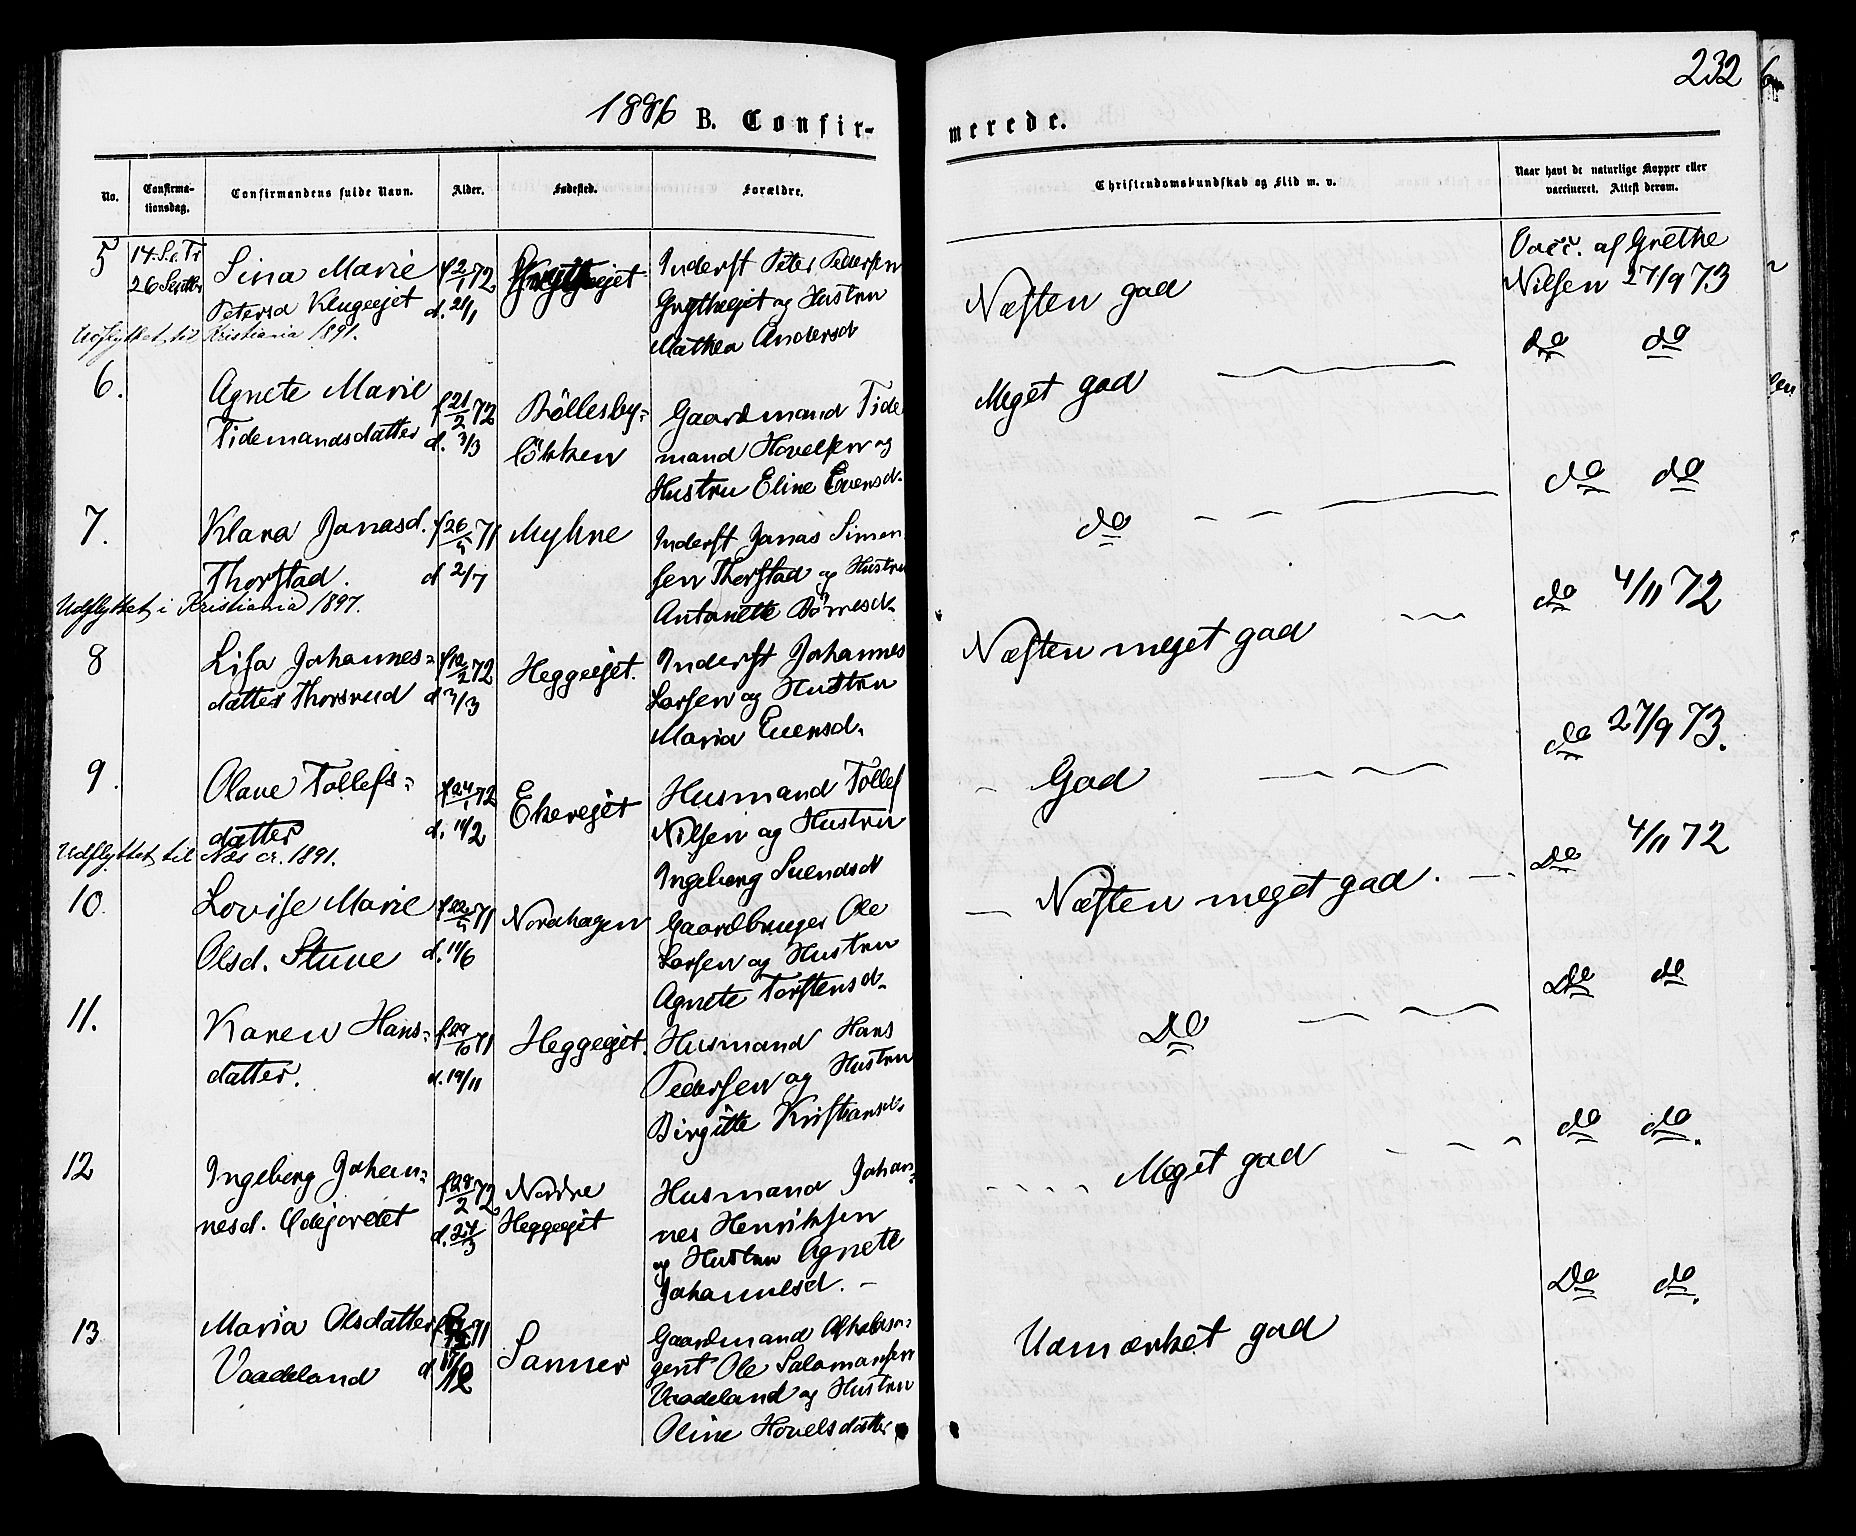 232
1886 B. Confir-
merede.
No.
Confirma-
tionsdag.
Confirmandens fulde Navn.
Alder.
Fødested.
Forældre.
Christendomskundskab og Flid m. v.
Naar havt de naturlige Kopper eller
vaccineret. Attest derom.
5
14. S. e. Tr
26 Septbr
Lina Marie
Petersd
Udflyttet til Kristiania 1891.
f 2/1 72
d. 21/1
Inderst Peter Pedersen
og Hustru
Mathea Andersd
Næsten god
Vacc. af Grethe
Nilsen 27/9 73
6.
Agnete Marie
Tidemandsdatter
f 21/2 72
d. 3/3
Böllesby-
lökken
Gaardmand Tide
mand Hovelsen og
Hustru Eline Evensd.
Meget god
do do
7.
Klara Jonasd.
Thorstad.
Udflyttet i Kristiania 1897.
f 26/5 71
d 2/7
Myhre
Inderst Jonas Simon
sen Thorstad og Hustru
Antonette
do
do do
8
Lisa Johannes-
datter Thorsrud
72
d 3/3
Heggeejet.
Inderst Johannes
Larsen og Hustru
Maria Evensd.
Næsten meget god
do 4/11 72
9.
Olave Tollefs-
datter
Udflyttet til Næs cr. 1891.
f 24/1 72
d. 11/2
Ekerejet
Husmand Tollef
Nilsen og Hustru
Ingeborg Svendsd
God
do 27/9 73.
10.
Lovise Marie
Olsd. Stuve
f 22/5 71
d. 11/6
Nordhagen
Gaardbruger Ole
Larsen og Hustru
Agnete Torstensd.
Næsten meget god.
Do 4/11 72
11.
Karen Hans-
datter.
f 29/10 71
d. 19/11
Heggeejet.
Husmand Hans
Pedersen og Hustru
Birgitte Kristiansd.
Do
Do do
12
Ingeborg Johan-
nesd. Ödejordet
f 28/2 72
d. 24/3
Nordre
Heggeejet
Husmand Johan-
nes Henriksen
og Hustru Agnete
Johannesd.
Meget god
do do.
13
Maria Olsdatter
Vaadeland
71
d
Sanner
Gaardmand
gent Ole Salamonsen
Vaadeland og Hustru
Oline Hovelsdatter
Udmærket god
Do do.